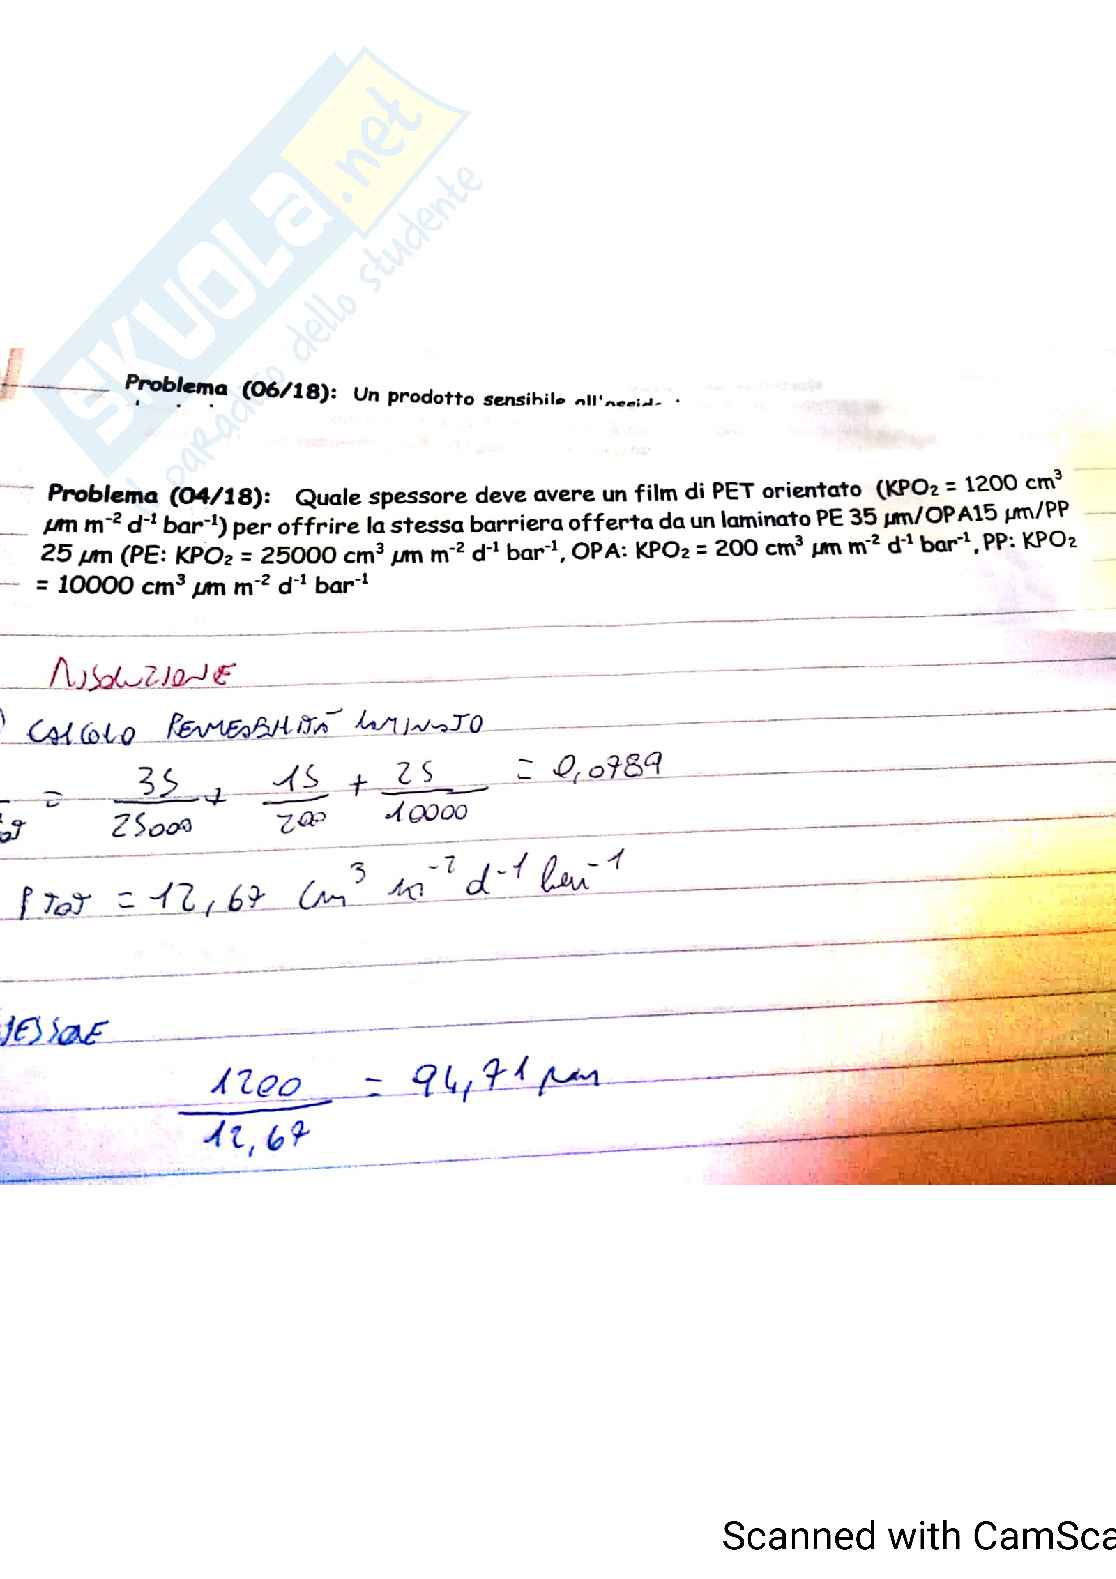 SKUOLA.net
il paradiso dello studente
Problema (06/18): Un prodotto sensibile
Problema (04/18): Quale spessore deve avere un film di PET orientato (KPO₂ = 1200 cm³
µm m⁻² d⁻¹ bar⁻¹) per offrire la stessa barriera offerta da un laminato PE 35 µm/OPA15 µm/PP
25 µm (PE: KPO₂ = 25000 cm³ µm m⁻² d⁻¹ bar⁻¹, OPA: KPO₂ = 200 cm³ µm m⁻² d⁻¹ bar⁻¹, PP: KPO₂
= 10000 cm³ µm m⁻² d⁻¹ bar⁻¹
RISOLUZIONE
) CALCOLO PERMEABILITÀ LAMINATO
= 35/25000 + 15/200 + 25/10000 = 0,0789
P TOT = 12,67 cm³ m⁻² d⁻¹ bar⁻¹
ESSORE
1200/12,67 = 94,71 µm
Scanned with CamSca